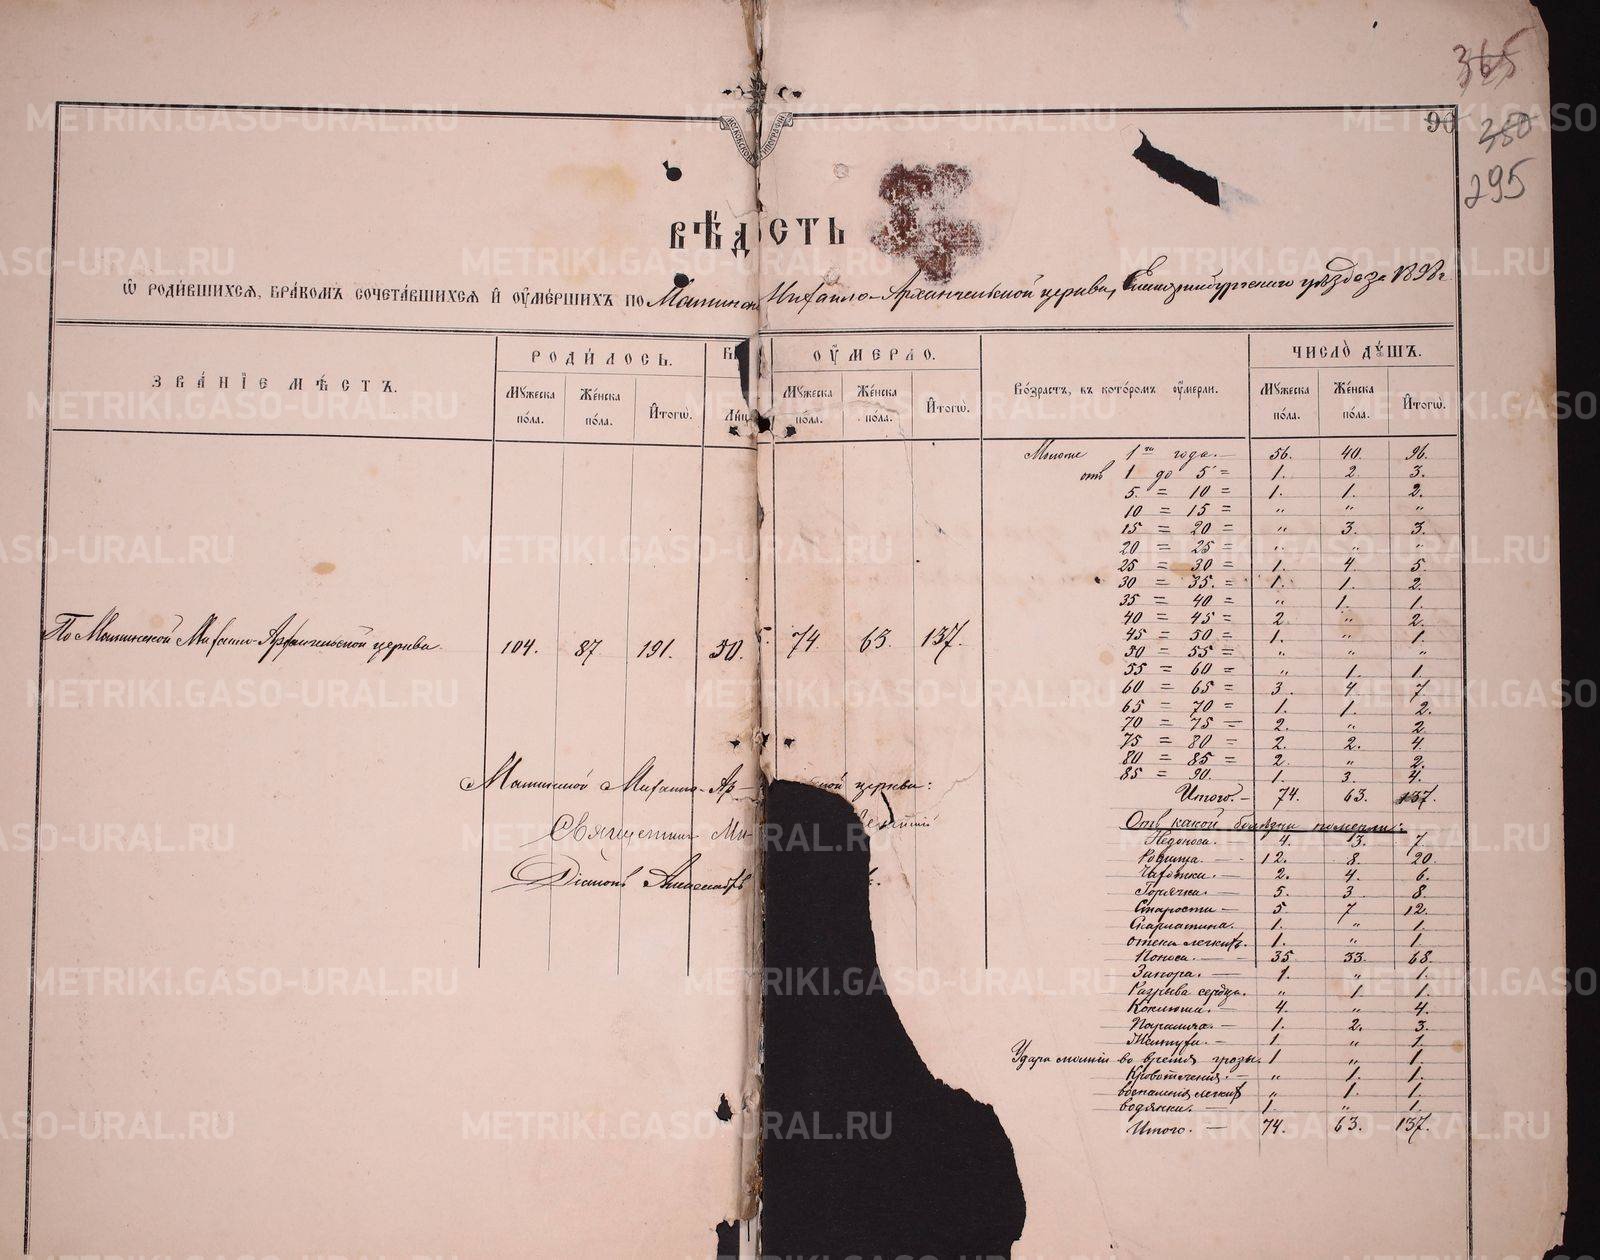 365
90
350
295
МОСКОВСКОЙ ТИПОГРАФІИ
ВѢДОСТЬ
Ѡ РОДИВШИХСѦ, БРАКОМЪ СОЧЕТАВШИХСѦ И ОУМЕРШИХЪ ПО Маминской Михаило-Архангельской церкви, Екатеринбургскаго уѣзда за 1898 г.
ЗВАНІЕ МѢСТЪ. РОДИЛОСЬ. ОУМЕРЛО. Возрастъ, въ которомъ оумерли. ЧИСЛО ДУШЪ.
Мужеска пола. Женска пола. Итогѡ. Мужеска пола. Женска пола. Итогѡ. Мужеска пола. Женска пола. Итогѡ.
Моложе 1го года. — 56. 40. 96.
отъ 1 до 5 = 1. 2. 3.
5. = 10 = 1. 1. 2.
10 = 15 = " " "
15 = 20 = " 3. 3.
20 = 25 = " " "
25 = 30 = 1. 4. 5.
30 = 35. = 1. 1. 2.
35 = 40 = " 1. 1.
40 = 45 = 2. " 2.
45 = 50 = 1. " 1.
50 = 55 = " " "
55 = 60 = " 1. 1.
60 = 65 = 3. 4. 7.
65 = 70 = 1. 1. 2.
70 = 75 = 2. " 2
75 = 80 = 2. 2. 4.
80 = 85 = 2. " 2.
85 = 90. 1. 3. 4.
Итого. — 74. 63. 137.
По Маминской Михаило-Архангельской церкви. 104. 87 191. 30. 74. 63. 137.
Маминской Михаило-Ар ской церкви:
Священникъ Ми
Діаконъ Александръ
Отъ какой болѣзни померли:
Недоноса. 4. 3. 7.
Родимца. — 12. 8. 20.
Чахотки. — 2. 4. 6.
Горячки. — 5. 3. 8.
Старости — 5. 7 12.
Скарлатина. 1. " 1.
отека легкихъ. 1. " 1.
Поноса. — 35 33. 68.
Запора. — 1. " 1.
Разрыва сердца. " 1. 1.
Коклюша. — 4. " 4.
Паралича. — 1. 2. 3.
Желтухи. — 1. " 1.
Удара молніи во время грозы. 1 " 1.
Кровотеченія. — " 1. 1.
воспаленія легкихъ " 1. 1.
водянки. — 1. " 1.
Итого. — 74. 63. 137.
METRIKI.GASO-URAL.RU